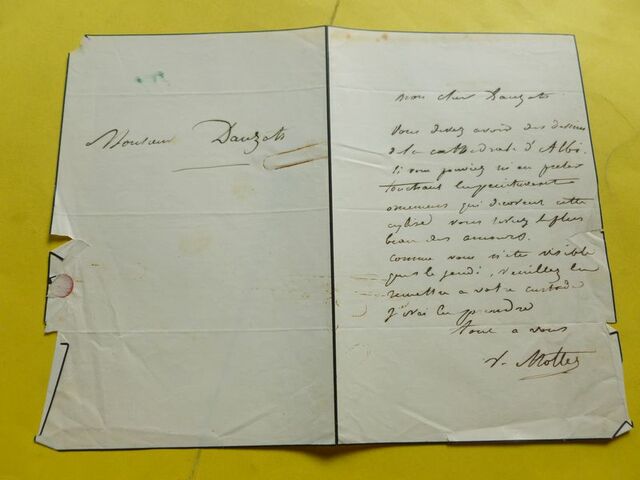 Monsieur Dauzats
mon cher Dauzats
Vous devez avoir des dessins
de la cathédrale d'Albi.
Si vous pouviez m'en preter
touchant les peintures et
ornemens qui decorent cette
eglise vous seriez le plus
beau des amours.
comme vous n'etes visible
que le jeudi, veuillez les
remettre a votre custode
J'irai les prendre
tout a vous
V. Mottez